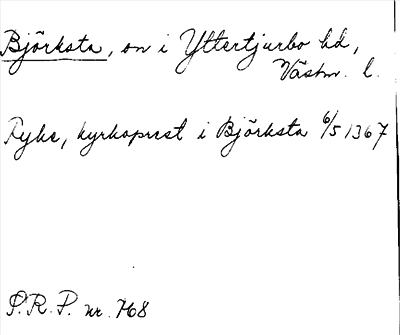 Björksta, sn i Yttertjurbo hd,
Västm. l.
Ryke, kyrkoprest i Björksta 6/5 1367
P.R.P. nr. 768